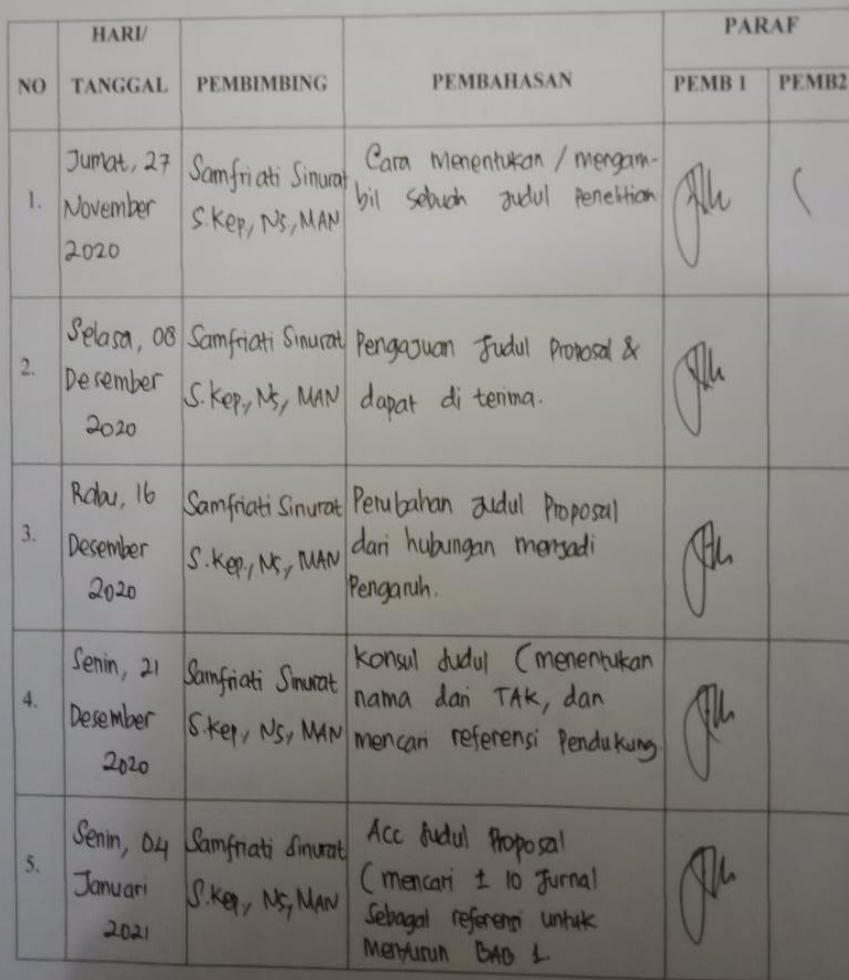 HARI/
TANGGAL
NO
PEMBIMBING
PEMBAHASAN
PARAF
PEMB 1
PEMB2
1.
Jumat, 27
November
2020
Samfriati Sinurat
S.Kep, Ns, MAN
Cara Menentukan / mengam-
bil sebuah Judul Penelitian
2.
Selasa, 08
Desember
2020
Samfriati Sinurat
S.Kep, Ns, MAN
Pengajuan Judul Proposal &
dapat di terima.
3.
Rabu, 16
Desember
2020
Samfriati Sinurat
S.Kep., Ns, MAN
Perubahan Judul Proposal
dari hubungan menjadi
Pengaruh.
4.
Senin, 21
Desember
2020
Samfriati Sinurat
S.Kep, Ns, MAN
Konsul Judul (menentukan
nama dari TAK, dan
mencari referensi Pendukung
5.
Senin, 04
Januari
2021
Samfriati Sinurat
S.Kep, Ns, MAN
Acc Judul Proposal
(mencari ± 10 Jurnal
Sebagai referensi untuk
Menyurun BAB 1.